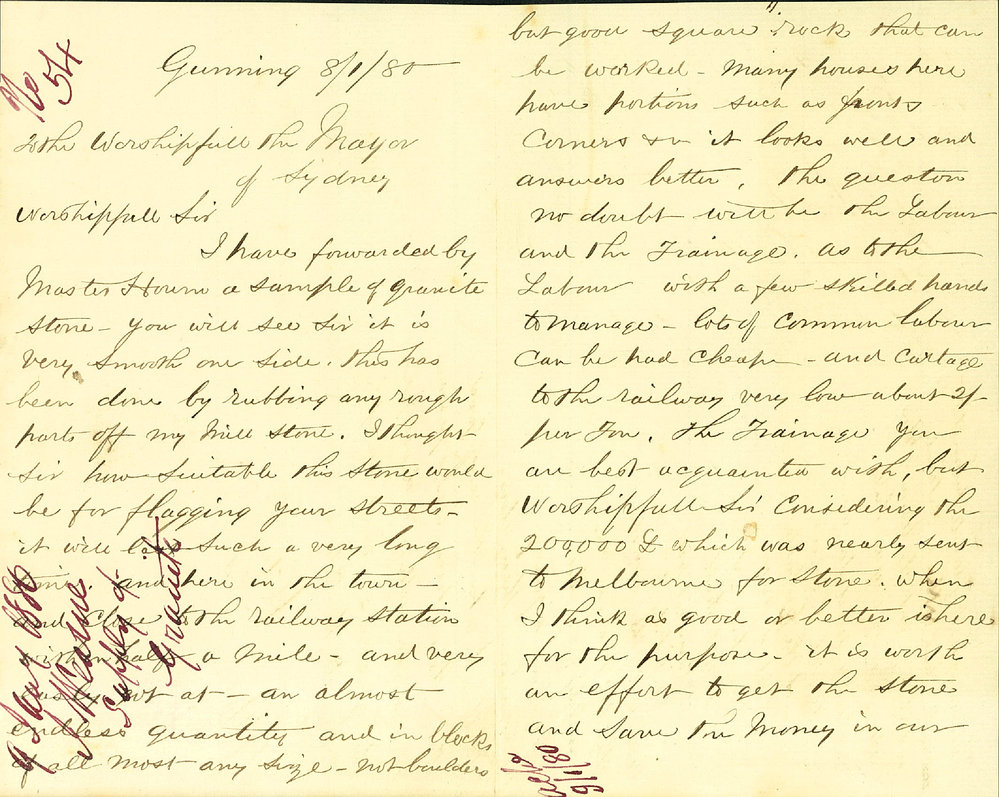 No 54
Gunning 8/1/80
To the Worshipfull the Mayor
of Sydney
Worshipfull Sir
I have forwarded by
Master a sample of granite
stone - you will see sir it is
very smooth one side. this has
been done by rubbing any rough
parts off my Mill Stone. I thought
sir how suitable this stone would
be for flagging your streets -
it will last such a very long
time. and here in the town -
and close to the railway station
within half a mile - and very
easily got at - an almost
endless quantity and in blocks
of all most any size - not boulders
9 Jany
Supply of
Granite
but good square rock that can
be worked - Many houses here
have portions such as fronts
Corners &c it looks well and
answers better, the queston
no doubt will be the Labour
and the Trainage. as to the
Labour with a few skilled hands
to manage - lots of common labour
can be had cheap - and Cartage
to the railway very low about 2/-
per Ton. the Trainage you
are best acquainted with, but
Worshipfull Sir Considering the
200,000 £ which was nearly sent
to Melbourne for stone. when
I think as good or better is here
for the purpose - it is worth
an effort to get the stone
and save the Money in our
9/1/80